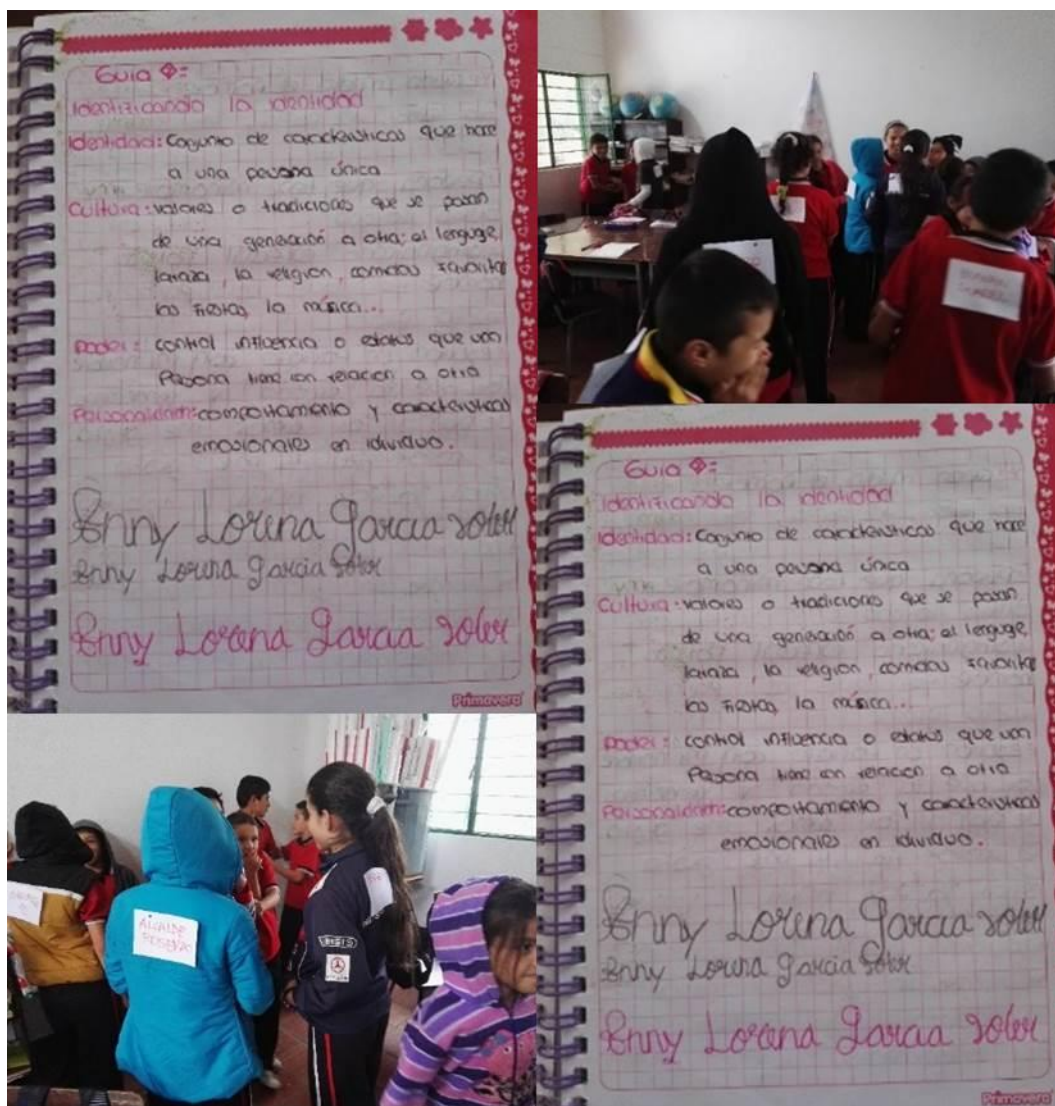 Guia
Identificando la identidad
Identidad: Conjunto de caracteristicas que hace
a una persona única
Cultura: valores o tradiciones que se pasan
de una generación a otra; el lenguge,
la raza, la religion, comidas favoritas
las fiestas, la música...
poder: control influencia o estatus que una
Persona tiene con relacion a otra
Personalidad: comportamiento y caracteristicas
emosionales en idividuo.
Enny Lorena Garcia Soler
Enny Lorena Garcia Soler
Enny Lorena Garcia Soler
Primavera
ALCALDE
Guia
Identificando la identidad
Identidad: Conjunto de caracteristicas que hace
a una persona única
Cultura: valores o tradiciones que se pasan
de una generación a otra; el lenguge,
la raza, la religion, comidas favoritas
las fiestas, la música...
poder: control influencia o estatus que una
Persona tiene con relacion a otra
Personalidad: comportamiento y caracteristicas
emosionales en idividuo.
Enny Lorena Garcia Soler
Enny Lorena Garcia Soler
Enny Lorena Garcia Soler
Primavera